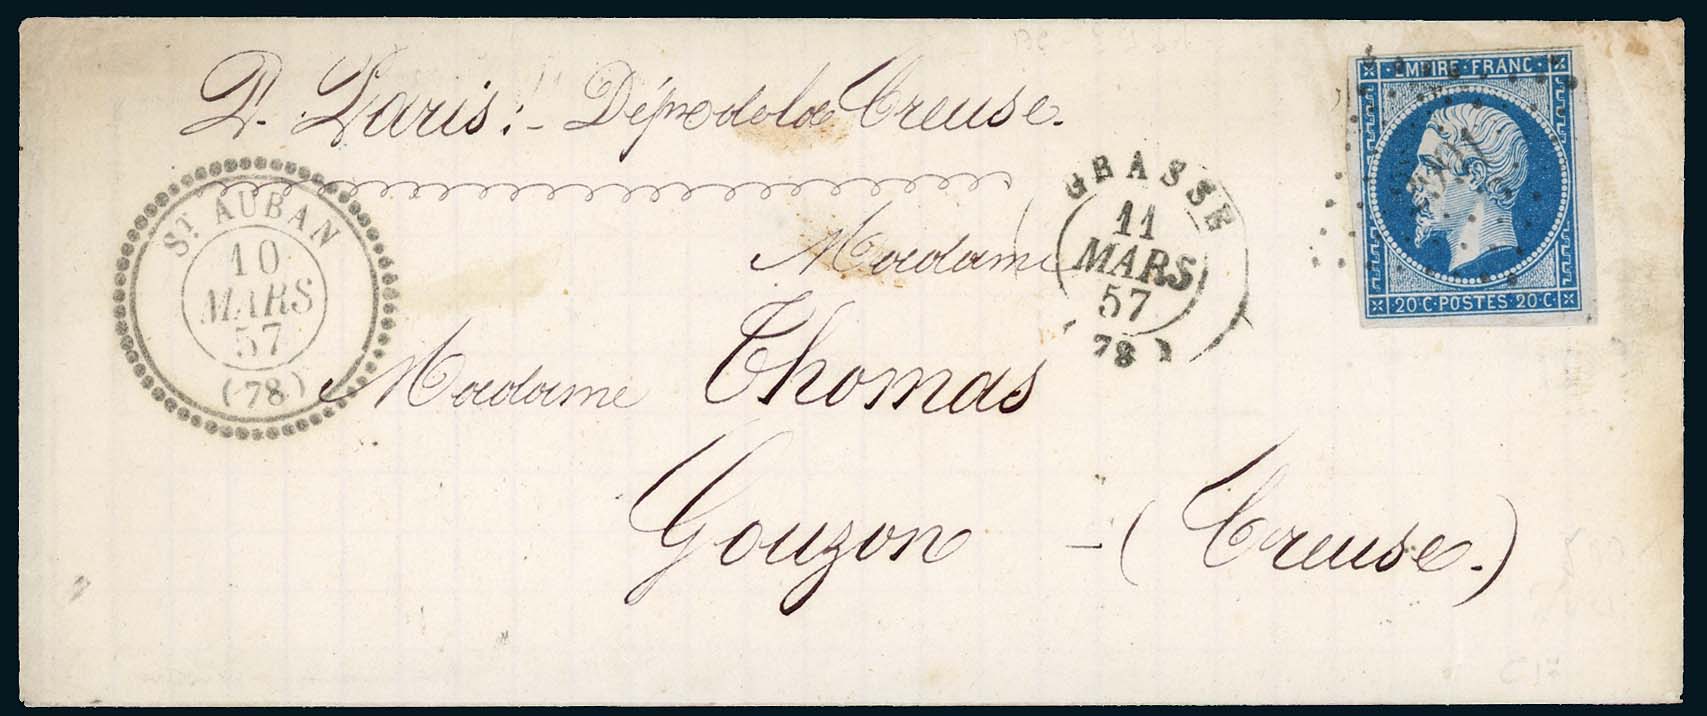 P. Paris:- Dépt de la Creuse.
EMPIRE·FRANC·
20·C·POSTES·20·C·
ST. AUBAN
10
MARS
57
(78)
GRASSE
11
MARS
57
(78)
Madame
Madame Thomas
Gouzon - (Creuse.)